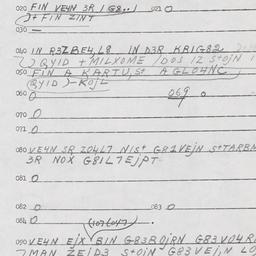 020 FIN VE4N 3R / G8..) 021 0
)+ FIN ZINT
030 —
040 IN R3ZBE4,L8 IN D3R KRIG82
) QYID + MILXOME / DOS IZ S+OJN
050 FIN A KARTU,S+ A GLO4NC,
(QYID)-ROJL
060 0 069 0
070 0
071 0
080 VE4N SR ZO4L7 NIS+ GR1VEJN S+TARBN
3R NOX G81L7EJPT-
081 0
082 0 083 0
084 0 (107/6047)
090 VE4N EJX BIN G83BOJRN G83VO4R
7MAN ZEJD3 S+OJN G83VEJ,N LO